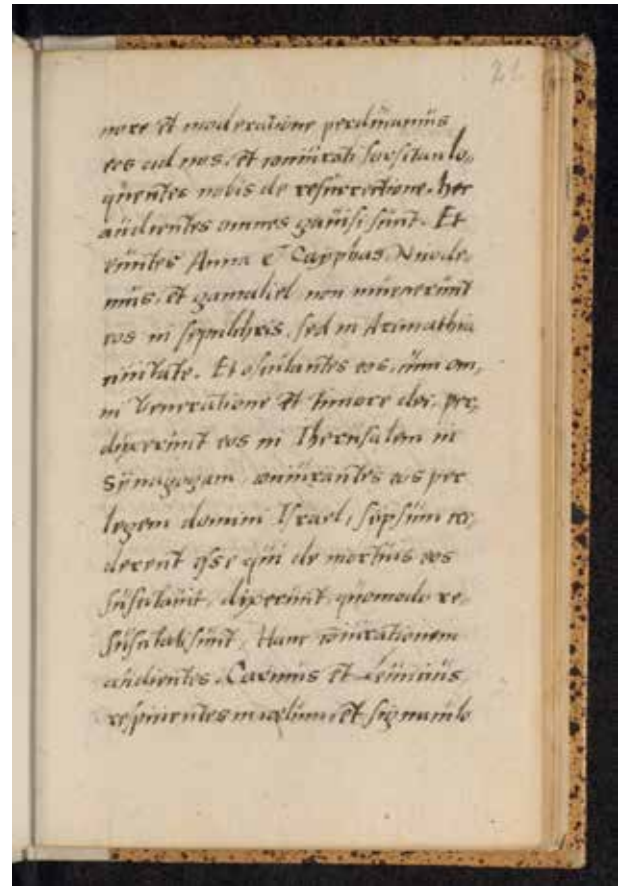 21
nore et moderatione perducamus
eos ad nos, et coniurati forsitan lo„
quentes nobis de resurrectione. hec
audientes omnes gauisi sunt. Et
euntes Anna e Cayphas, Nicode„
mus, et gamaliel non inuenerunt
eos in sepulchris, sed in Arimathia
ciuitate. Et osculantes eos, cum om„
ni veneratione et timore dei, per„
duxerunt eos in Iherusalem in
synagogam, coniurantes eos per
legem domini Israel, si ipsum cre„
derent esse qui de mortuis eos
suscitauit, dixerunt, quomodo re„
suscitati sunt, Hanc coniurationem
audientes. Carinus et Leuicius,
respicientes in celum, et signaculo